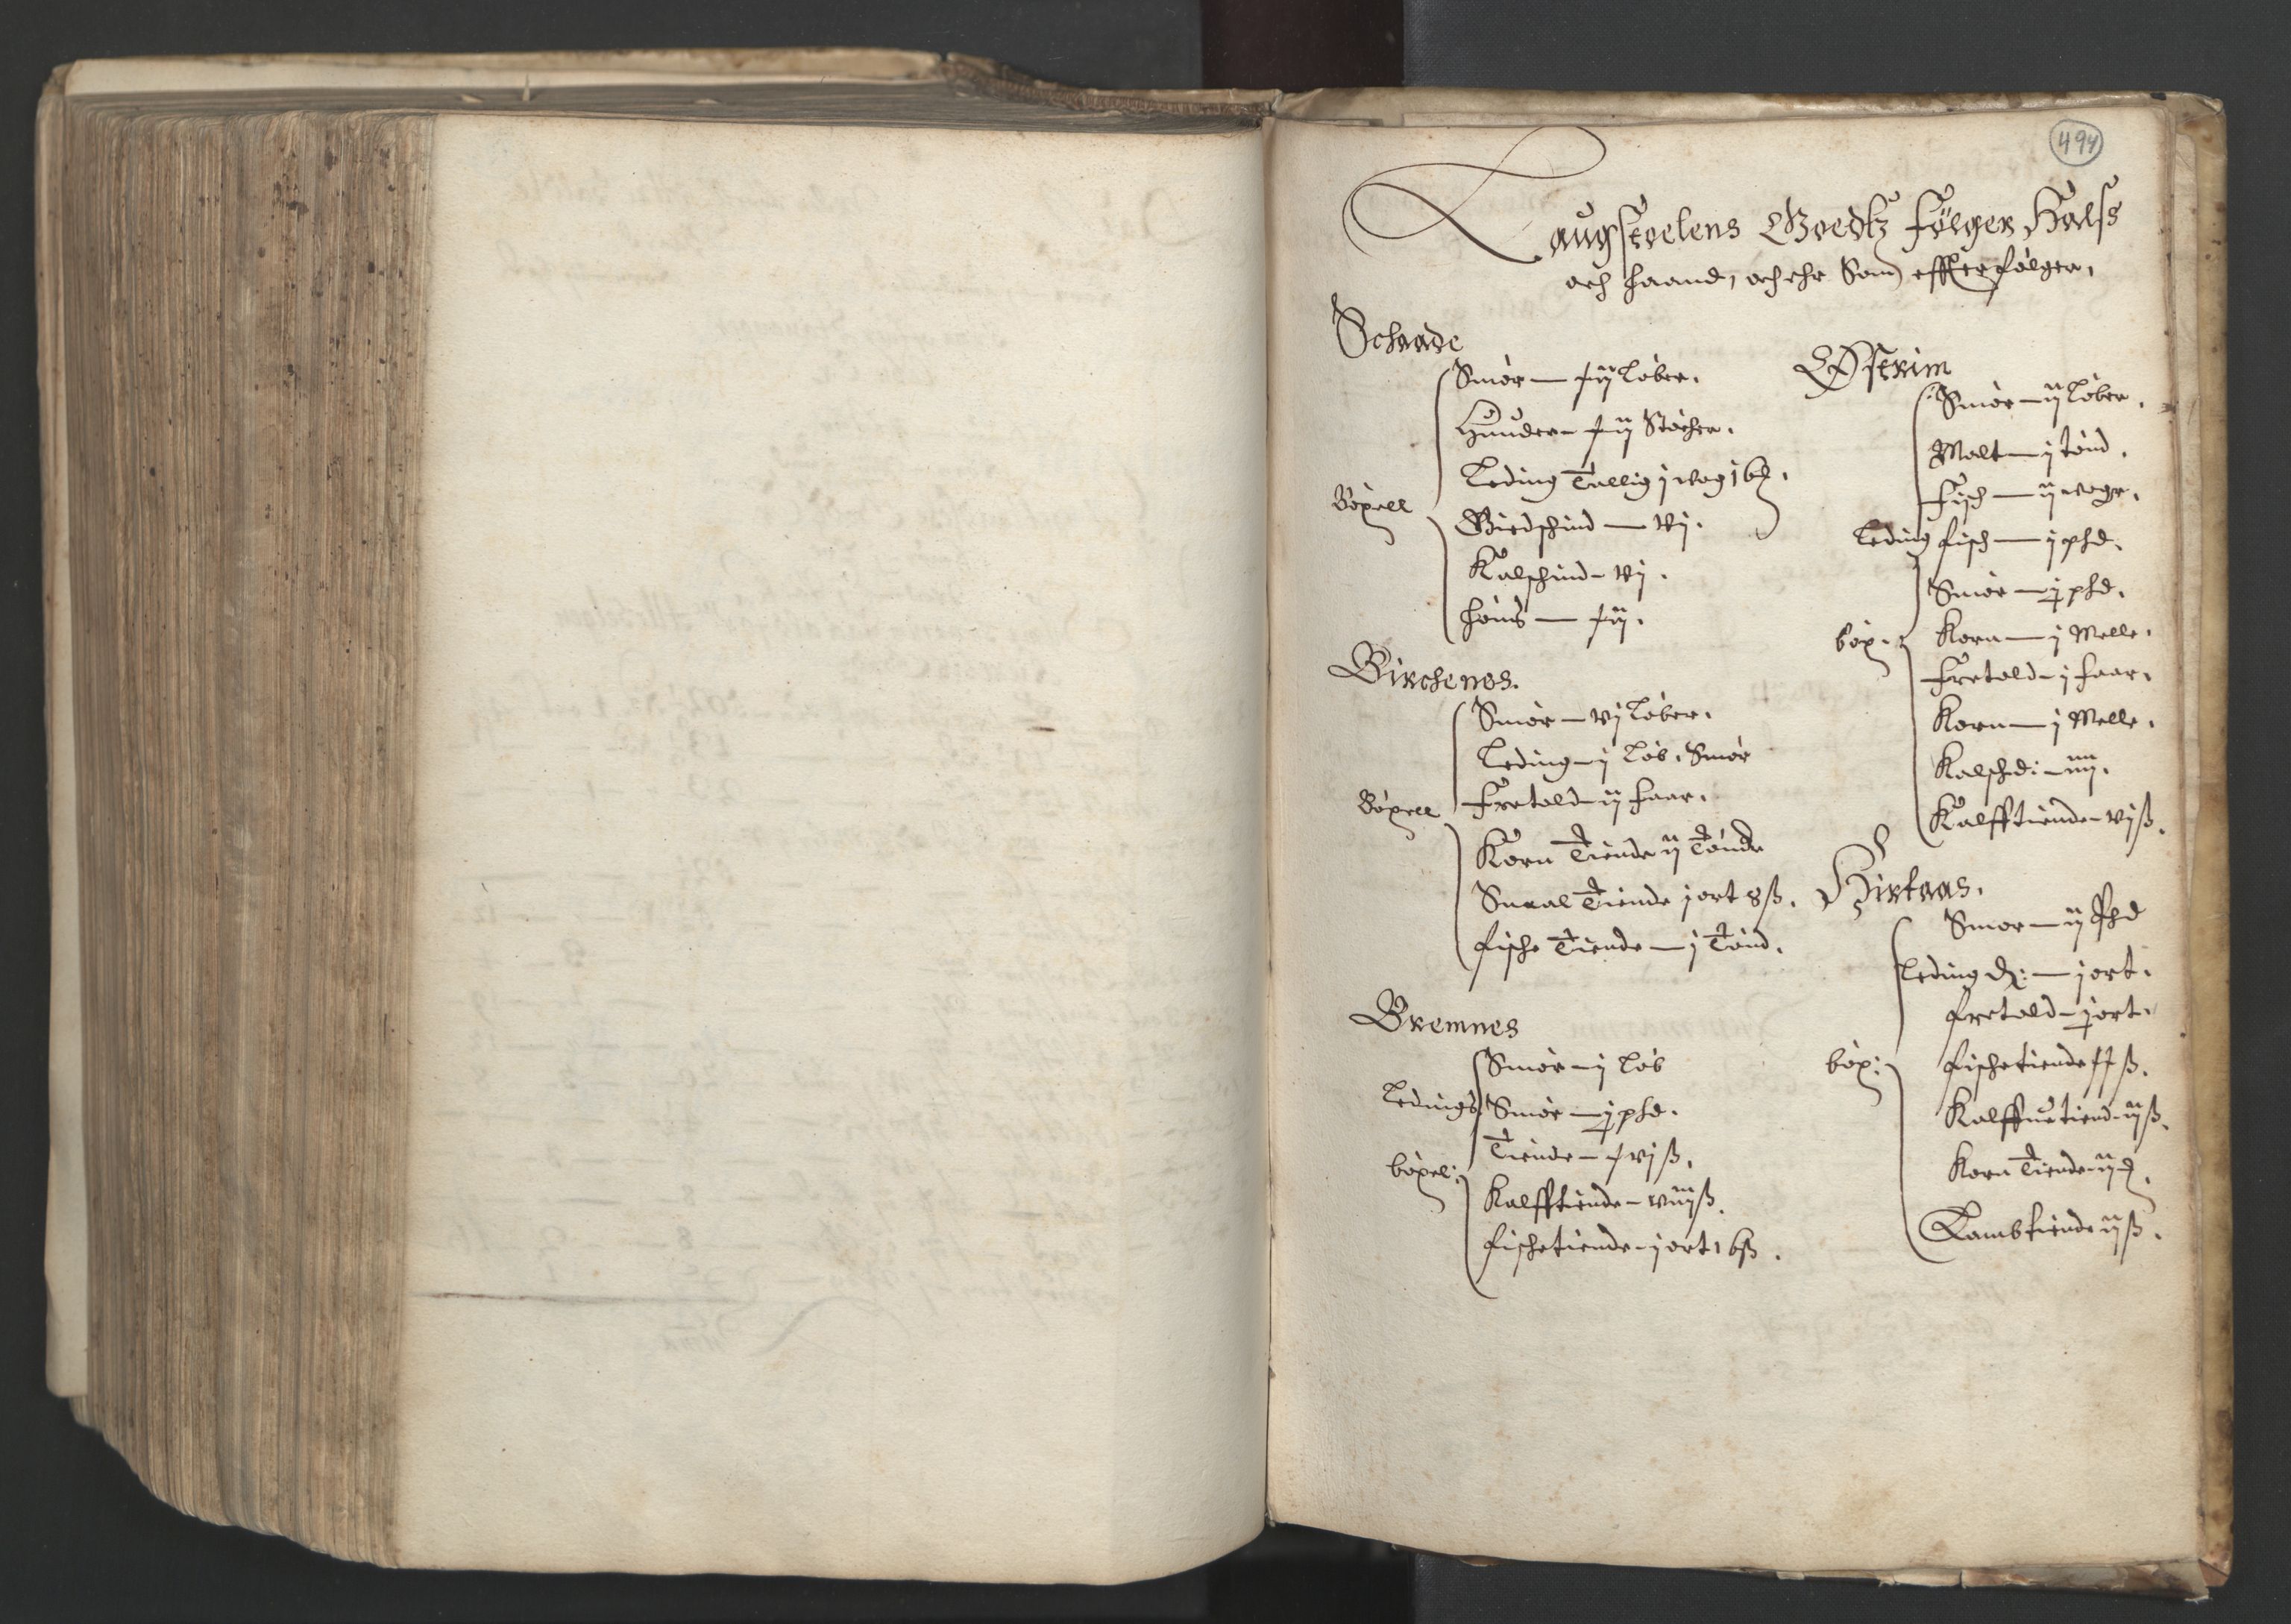 494
Laugstoelens Goedtz følger Halss
och haand, och ehr Som effterfølger,
Schaade
Smør — xij Løber.
Hunder — xij Støcher.
Leding Tallig j wog 1 b
Bøxell
Giedschind — vj.
Kalschind – vj.
høns — xij.
Birchenes.
Smør — vj Løber.
Leding – j Løb. Smør
Fretold – ij faar.
Bøxell
Korn Tiende ij Tønde
Smaal Tiende j ort 8 ß.
fische Tiende — j Tønd.
Bremnes
Smør – j Løb
Ledings Smør — j phd.
Tiende – xvj ß.
bøxel:
Kalfftiende – viij ß.
fischetiende – j ort 16 ß.
Østrim
Smør — ij Løber.
Malt — j tønd.
Fisch — ij woge.
Leding fisch — j phd.
Smør — j phd.
bøx:
Korn — j Melle.
Fretold – j faar.
Korn — j Melle.
Kalschd: – iiij.
Kalfftiende – vj ß.
Hirtaas.
Smør — ij Phd
Leding — j ort.
fretold – j ort.
bøx:
fischetiende ß.
Kalffuetiend – iij ß.
Korn Tiende – ij
Lambtiende ij ß.